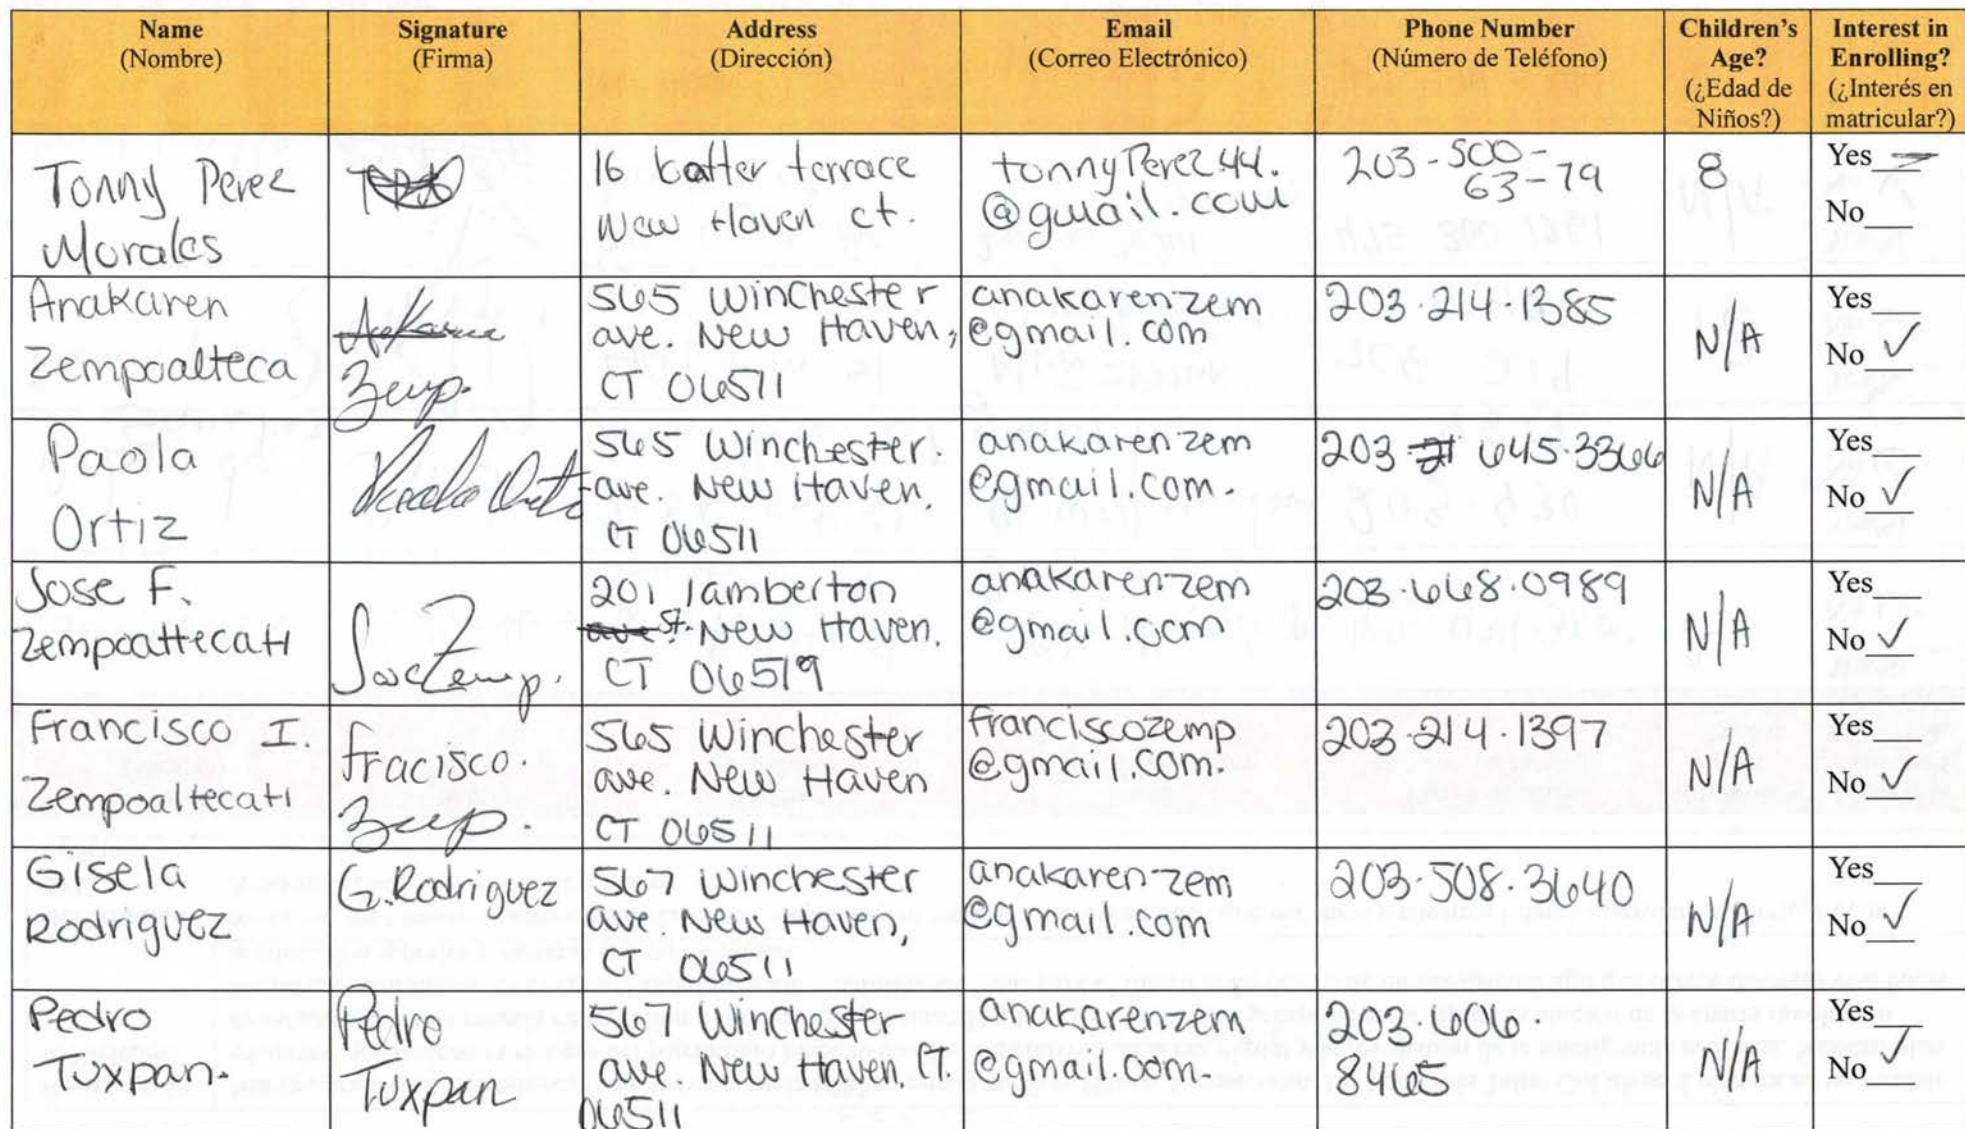 Name
(Nombre)
Signature
(Firma)
Address
(Dirección)
Email
(Correo Electrónico)
Phone Number
(Número de Teléfono)
Children's
Age?
(¿Edad de
Niños?)
Interest in
Enrolling?
(¿Interés en
matricular?)
Tonny Perez
Morales
16 batter terrace
New Haven ct.
tonnyPerez44.
@gmail.com
203-500-
63-79
8
Yes
No
Anakaren
Zempoalteca
Zemp.
565 Winchester
ave. New Haven,
CT 06511
anakarenzem
@gmail.com
203.214.1385
N/A
Yes
No ✓
Paola
Ortiz
Paola Ortiz
565 Winchester.
ave. New Haven.
CT 06511
anakarenzem
@gmail.com.
203 645.3366
N/A
Yes
No ✓
Jose F.
Zempoaltecatl
Jose Zemp.
201 lamberton
st. New Haven.
CT 06519
anakarenzem
@gmail.com
203.668.0989
N/A
Yes
No ✓
Francisco I.
Zempoaltecatl
Fracisco.
Zemp.
565 Winchester
ave. New Haven
CT 06511
franciscozemp
@gmail.com.
203.214.1397
N/A
Yes
No ✓
Gisela
Rodriguez
G.Rodriguez
567 Winchester
ave. New Haven,
CT 06511
anakarenzem
@gmail.com
203.508.3640
N/A
Yes
No ✓
Pedro
Tuxpan.
Pedro
Tuxpan
567 Winchester
ave. New Haven CT.
06511
anakarenzem
@gmail.com.
203.606.
8465
N/A
Yes
No ✓